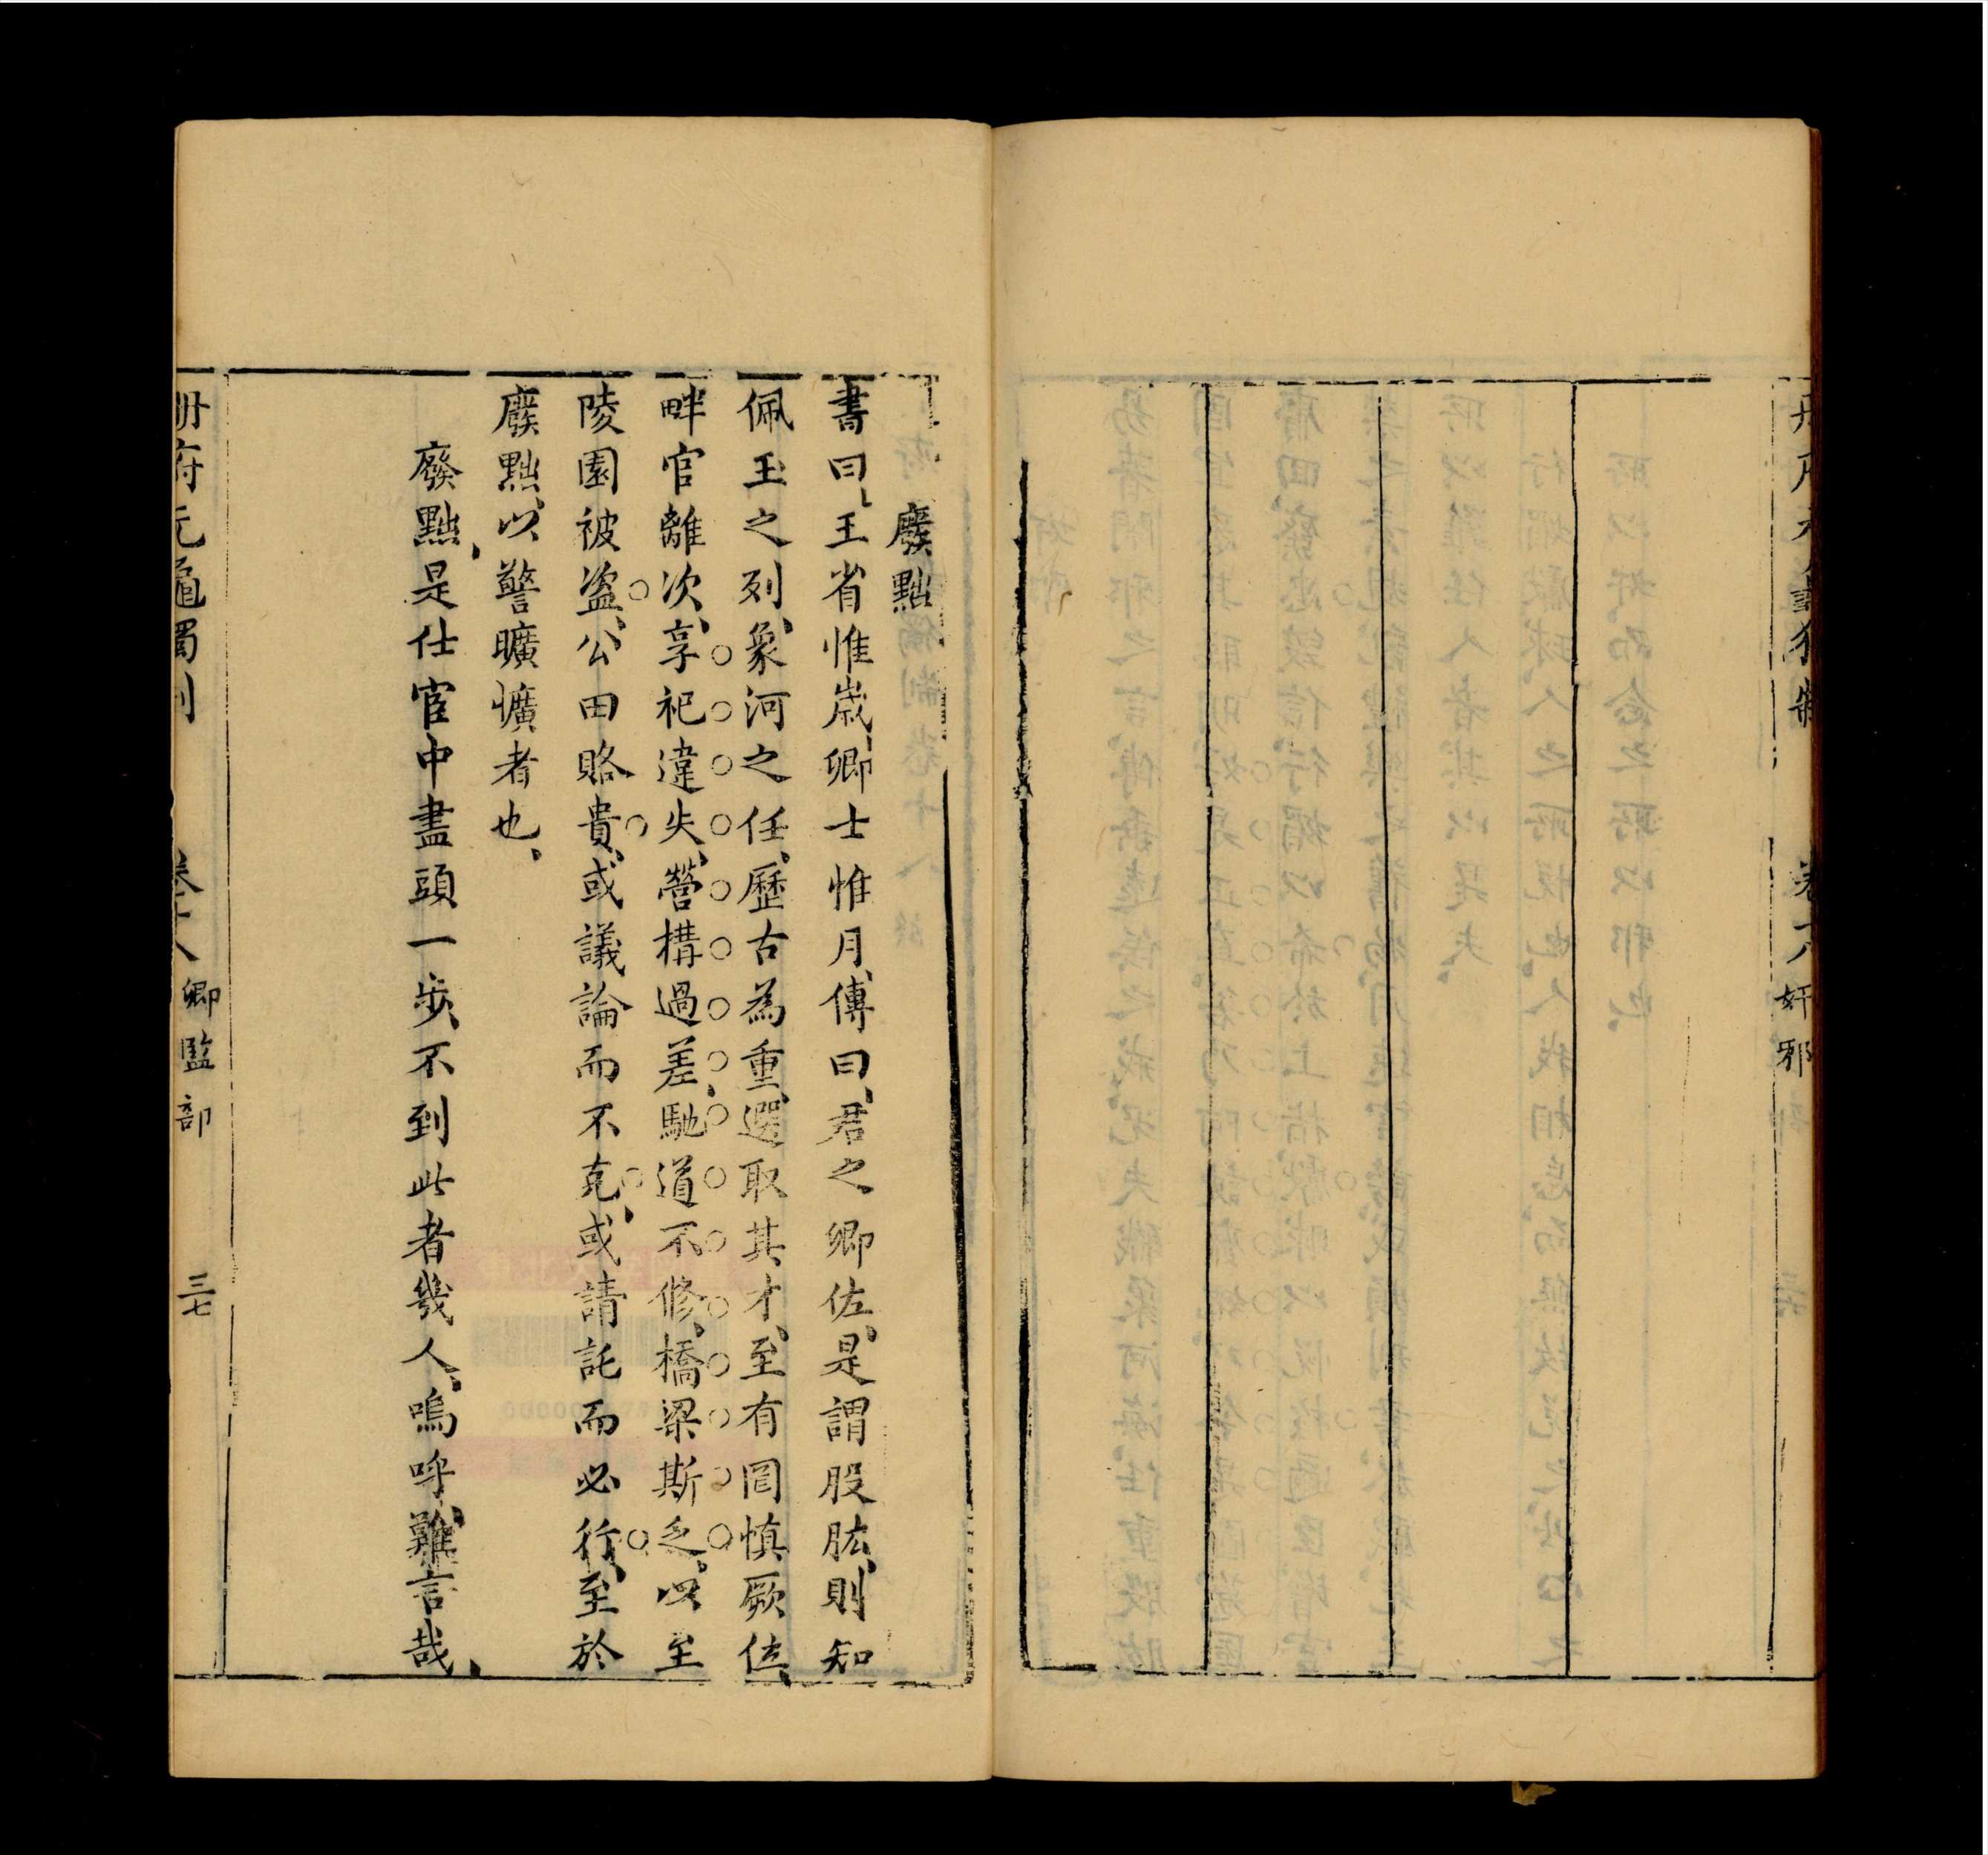 奸邪
廢黜
書曰王省惟歲卿士惟月傅曰君之卿佐是謂股肱則知
佩玉之列象河之任歷古為重選取其才至有罔慎厥位
畔官離次享祀違失營構過差馳道不修橋梁斯乏以至
陵園被盜公田賂貴或議論而不克或請託而必行至於
廢黜以警曠懭者也
廢黜是仕宦中盡頭一步不到此者幾人嗚呼難言哉
册府元龜獨制 卷十八 卿監部 三七